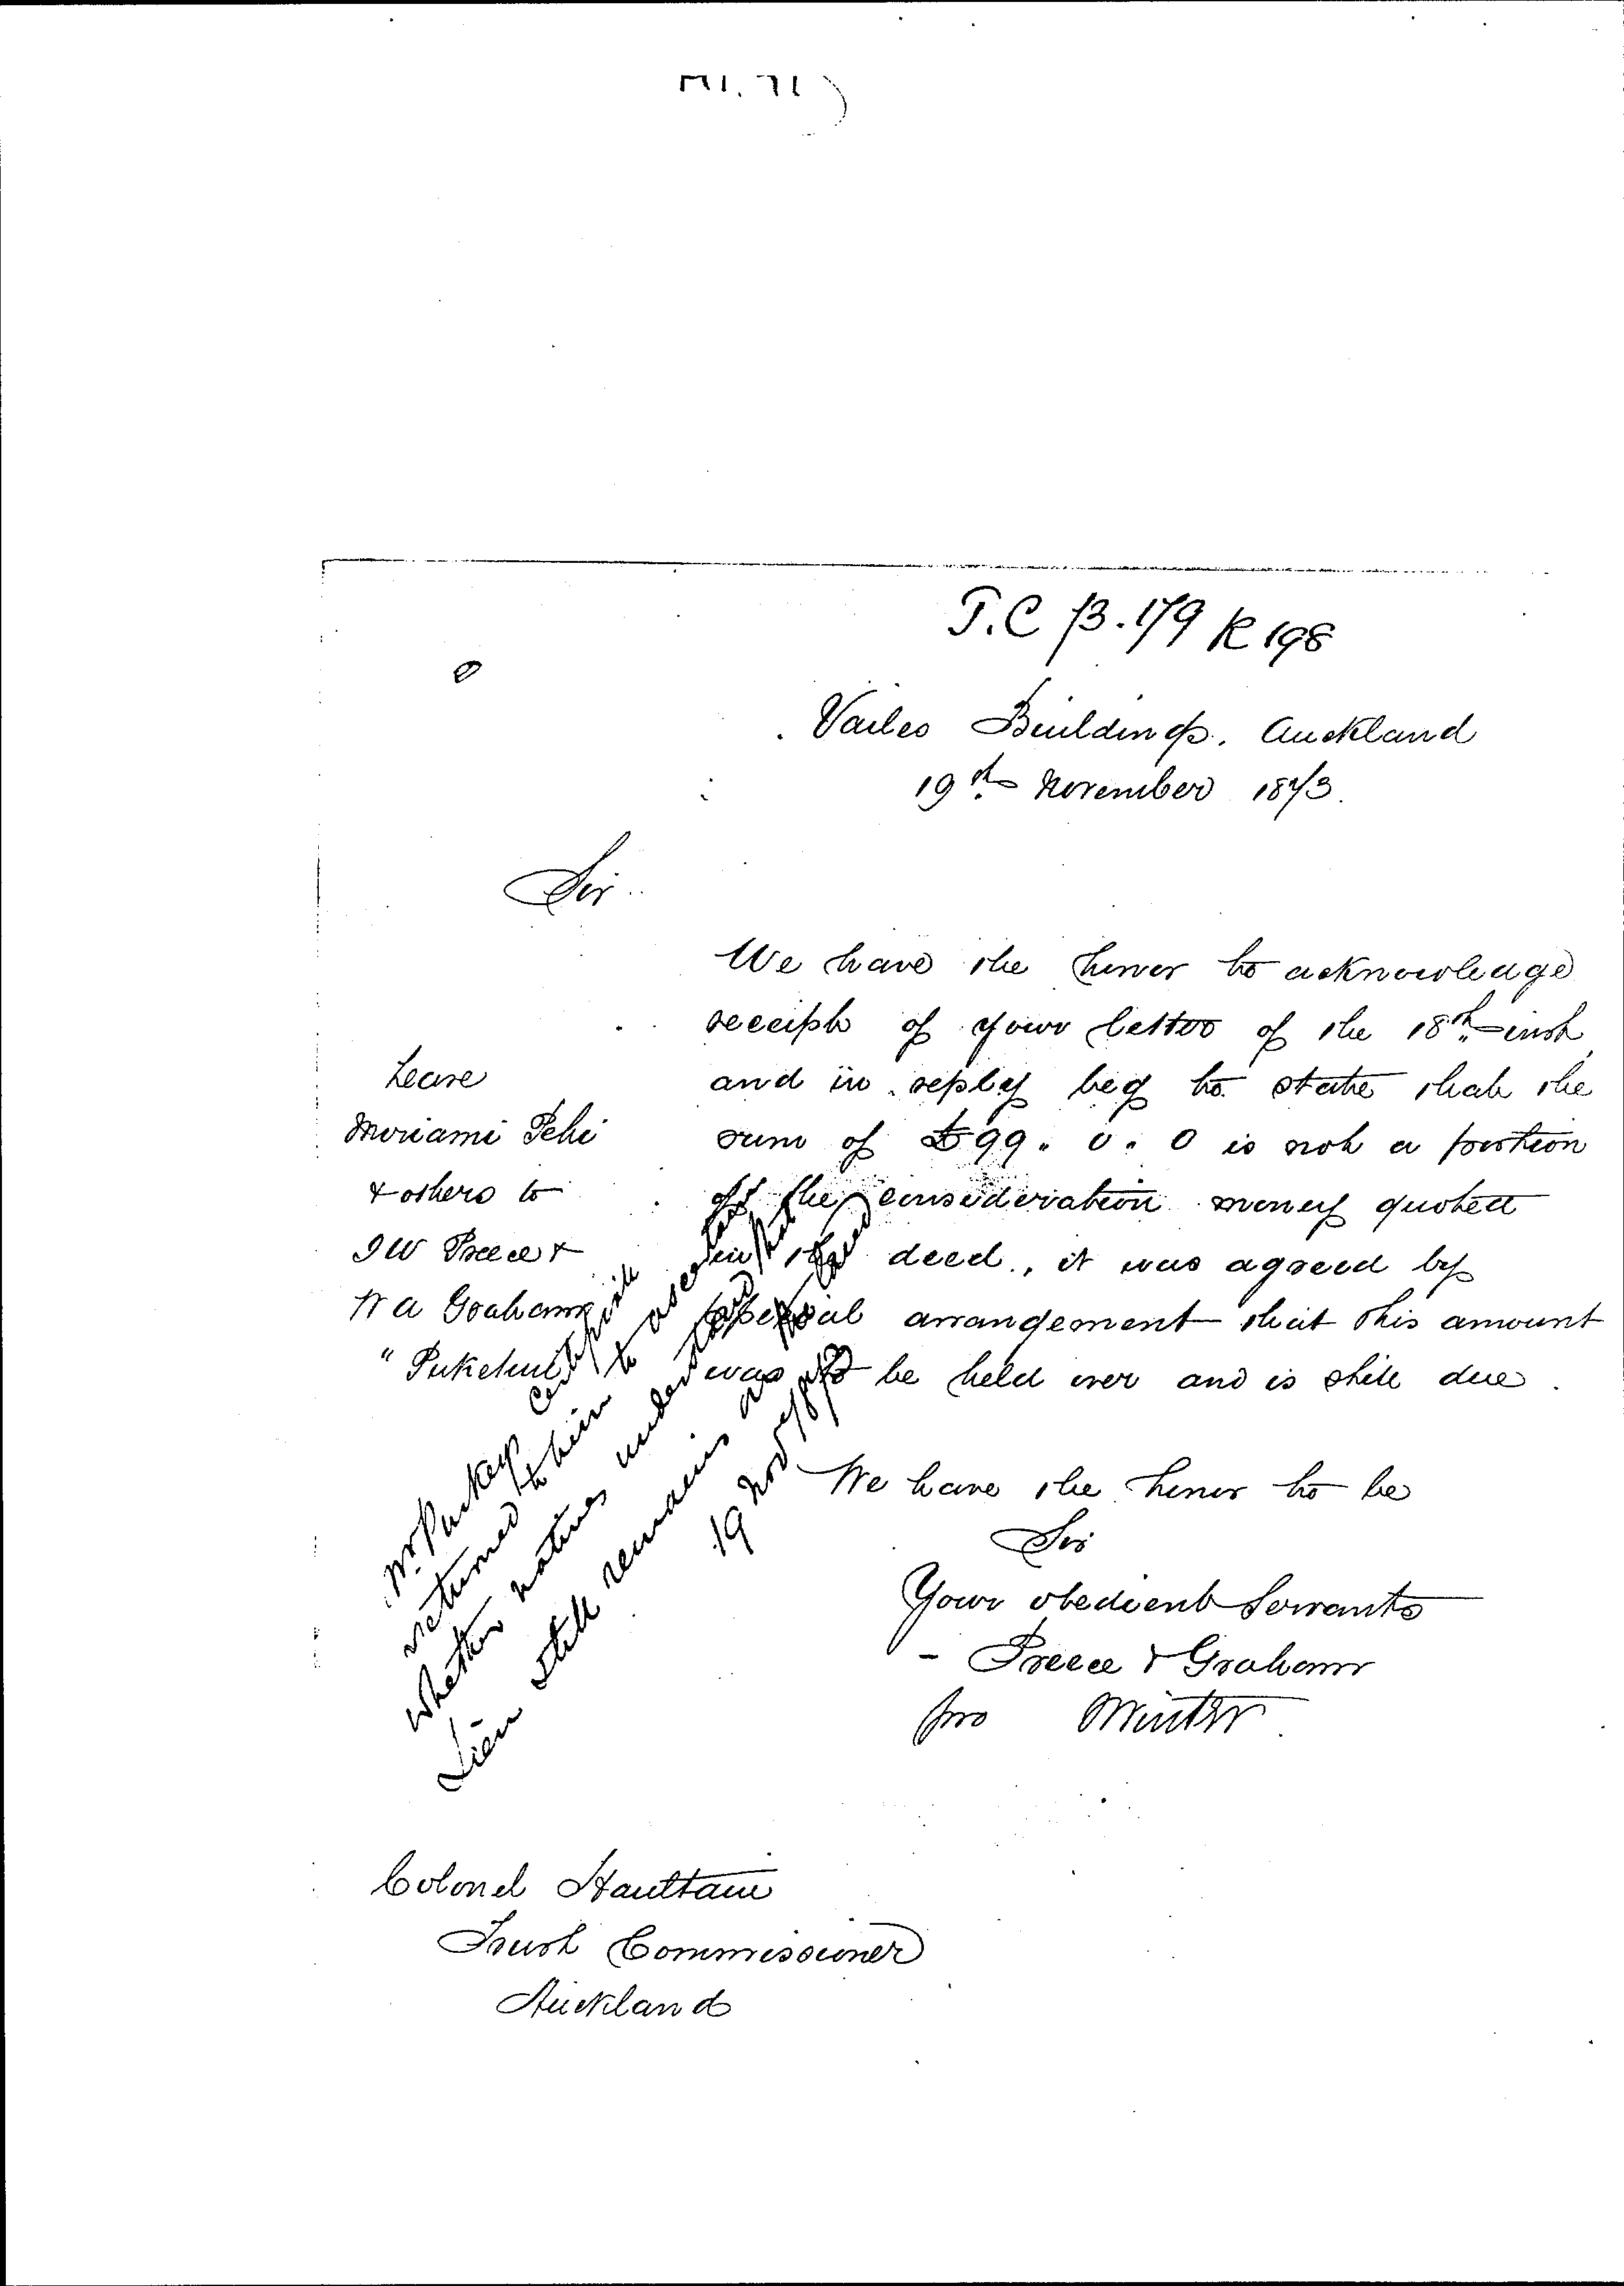 T.C 73.179 R 198
Vailes Buildings. Auckland
19th November 1873.
Sir
We have the honor to acknowledge
receipt of your letter of the 18th inst
and in reply beg to state that the
sum of £99. 0. 0 is not a portion
of the consideration money quoted
in the deed., it was agreed by
special arrangement that this amount
was to be held over and is still due.
Lease
Moriami Pehi
& others to
JW Preece &
W A Graham
"Pukehui
Mr Puckey
returned to him to
whether natives understand
Lien still remains
19 Nov/73
We have the honor to be
Sir
Your obedient Servants
- Preece & Graham
pro Minter
Colonel Haultain
Trust Commissioner
Auckland